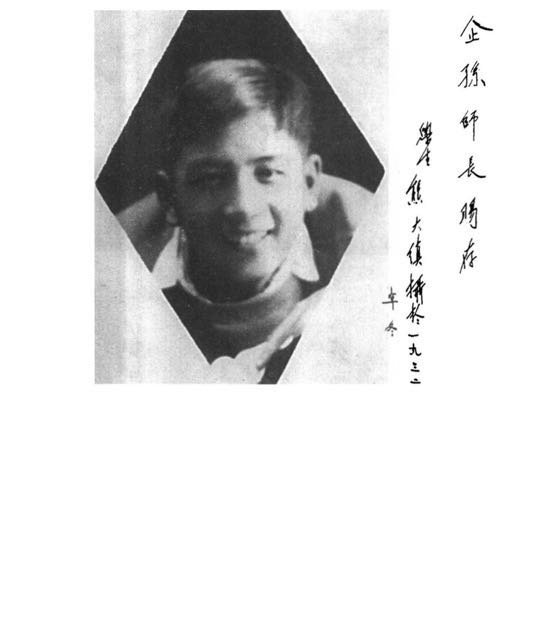 企孫師長賜存
學生熊大縝攝於一九三二
年冬